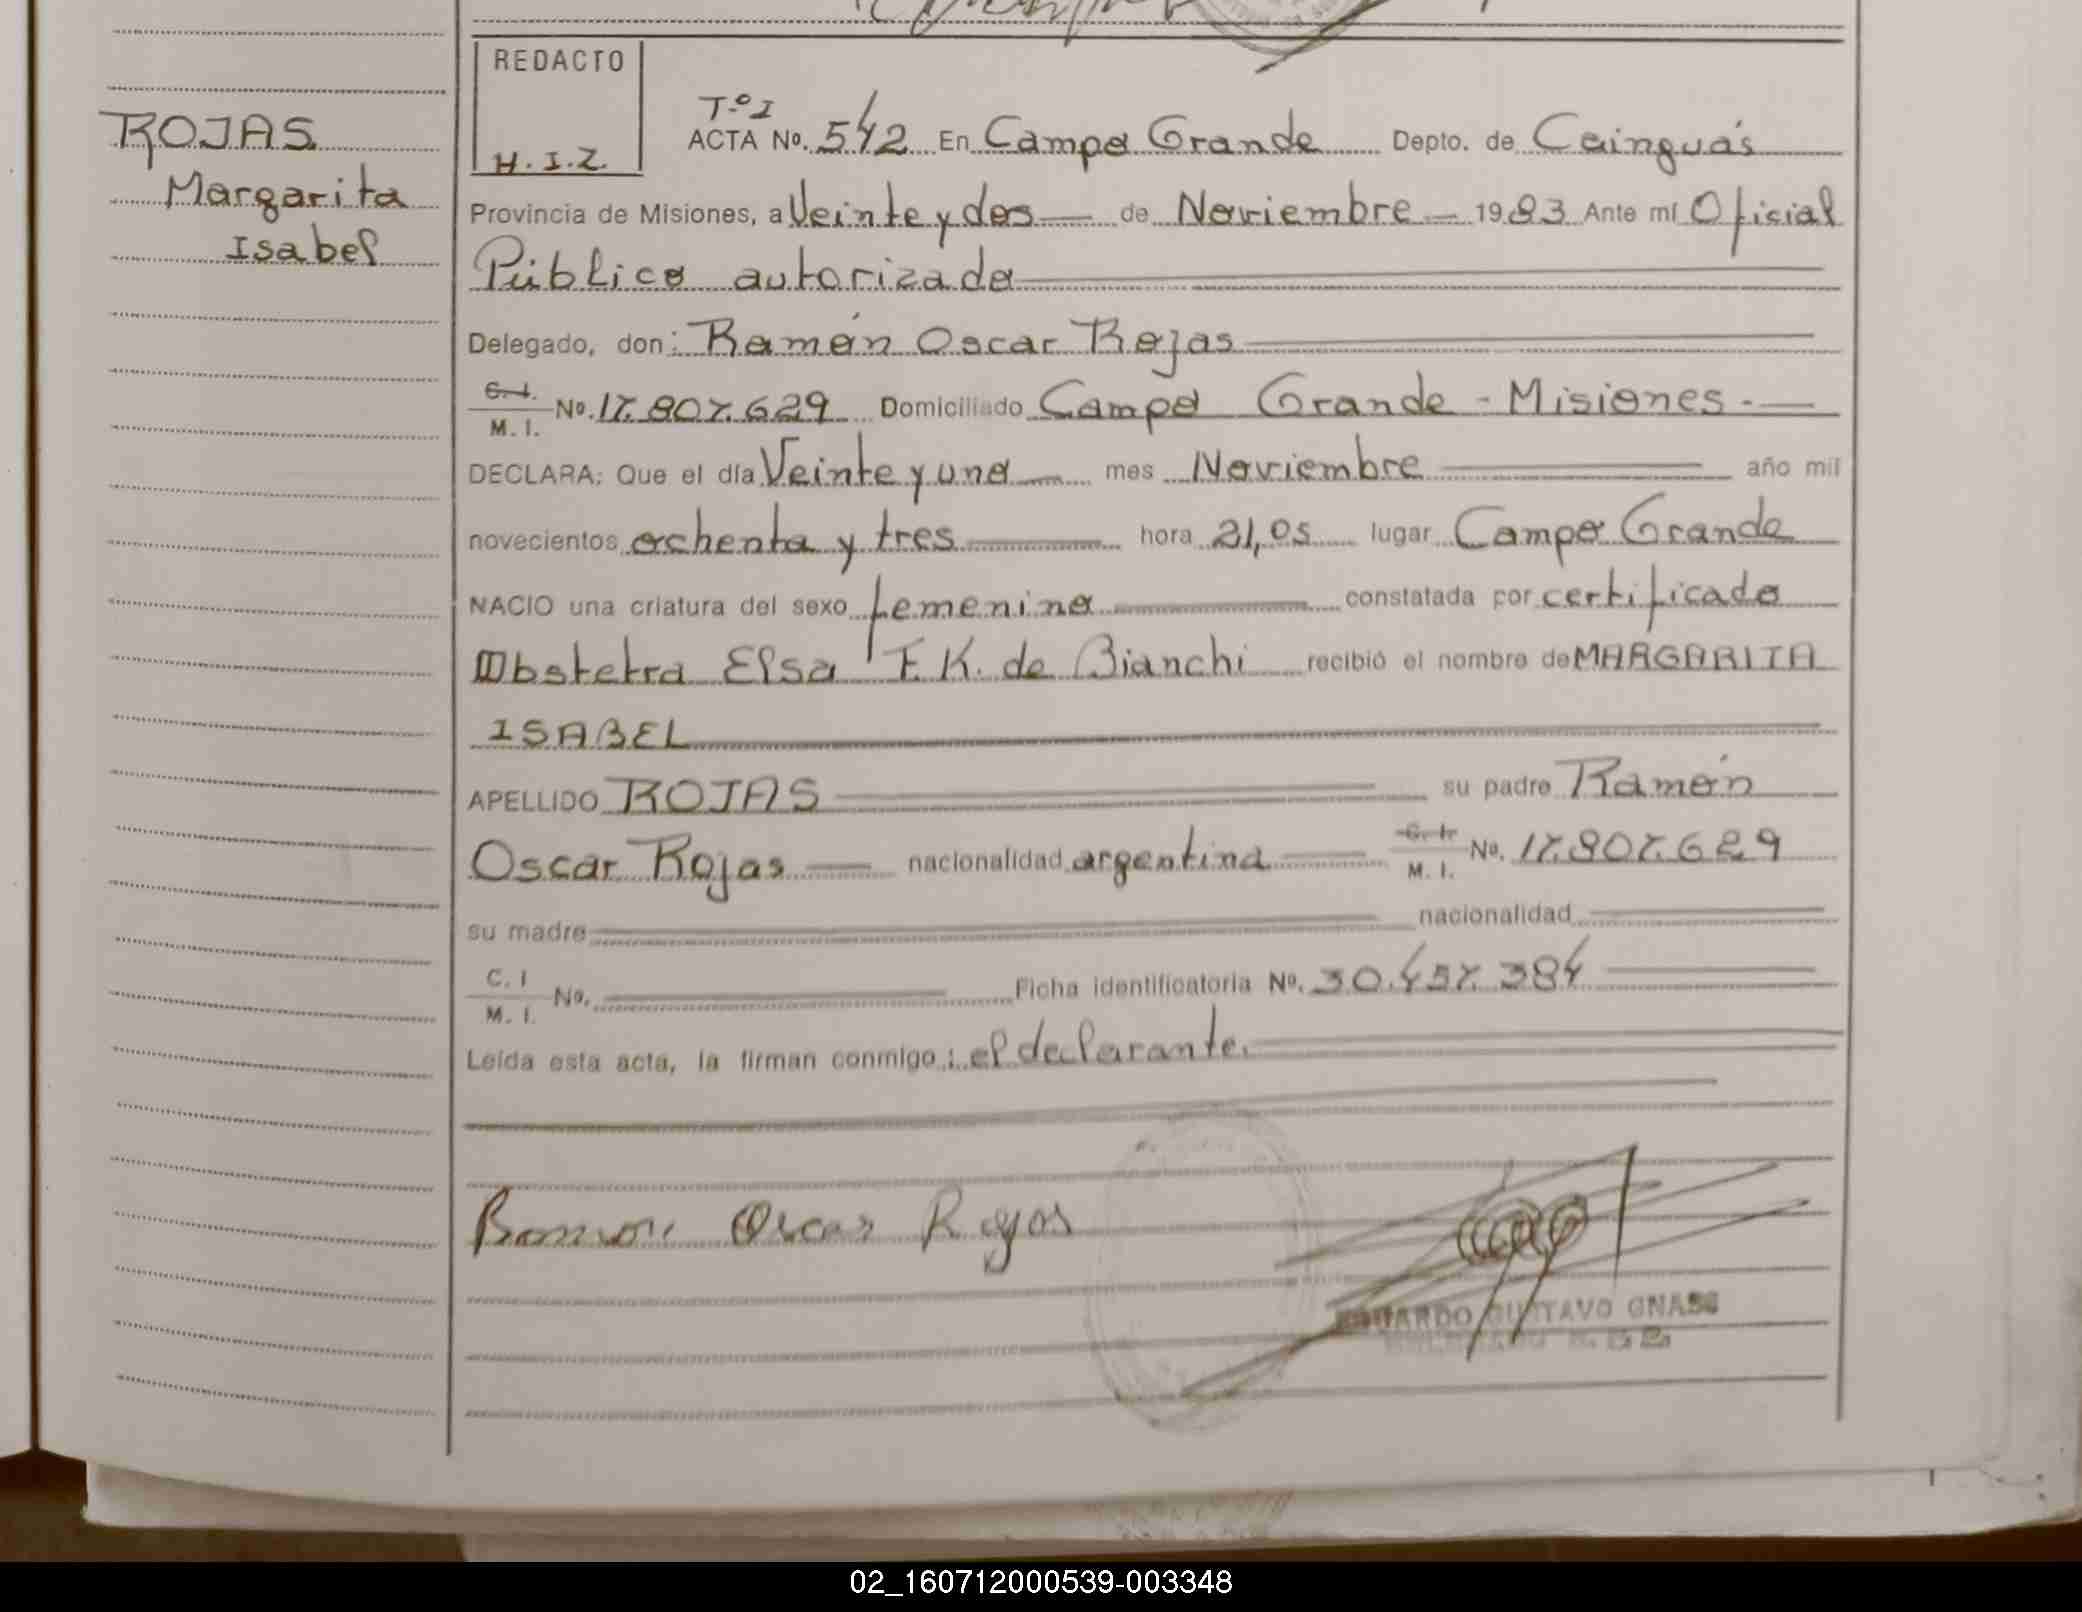 REDACTO
H.I.Z.
ROJAS
Margarita
Isabel
Tº I
ACTA Nº. 542 En Campo Grande Depto. de Cainguás
Provincia de Misiones, a Veinte y dos de Noviembre 1983 Ante mí Oficial
Público autorizado
Delegado, don: Ramón Oscar Rojas
C. I. M. I. Nº. 17.807.629 Domiciliado Campo Grande - Misiones.-
DECLARA: Que el día Veinte y uno mes Noviembre año mil
novecientos ochenta y tres hora 21,05 lugar Campo Grande
NACIO una criatura del sexo femenino constatada por certificado
Obstetra Elsa F. K. de Bianchi recibió el nombre de MARGARITA
ISABEL
APELLIDO ROJAS su padre Ramón
Oscar Rojas nacionalidad argentina C. I. M. I. Nº. 17.807.629
su madre nacionalidad
C. I M. I. Nº. Ficha identificatoria Nº. 30.457.384
Leída esta acta, la firman conmigo: el declarante.
Ramon Oscar Rojas
EDUARDO GUSTAVO GNASS
02_160712000539-003348